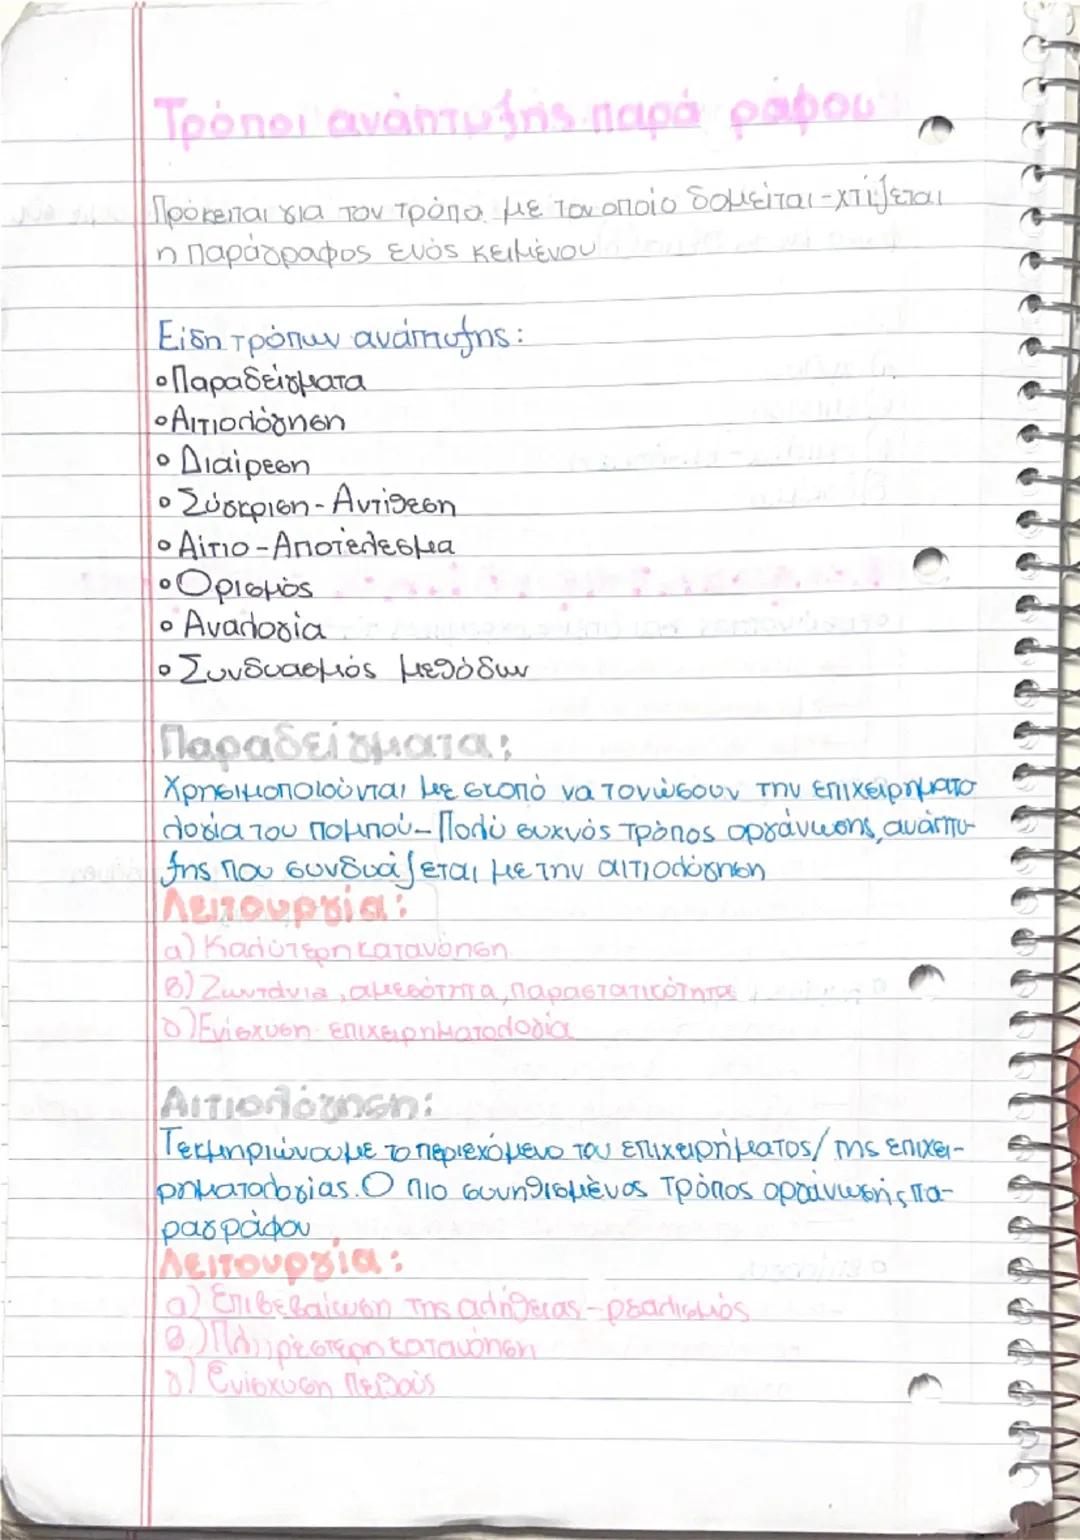 Τρόποι ανάπτυξης παρά ράφου
Πρόκειται για τον τρόπο με τον οποίο δομείται-χτίζεται
η παράγραφος ενός κειμένου
Είδη τρόπων ανάπτυξης:
•Παραδείγματα
•Αιτιολόγηση
• Διαίρεση
• Σύγκριση-Αντίθεση
• Αίτιο-Αποτέλεσμα
•Ορισμός
• Αναλογία
• Συνδυασμός μεθόδων
Παραδείγματα:
Χρησιμοποιούνται με σκοπό να τονώσουν την επιχειρηματο
λογία του πομπού-Πολύ συχνός τρόπος οργάνωσης, ανάπτυ-
ξης που συνδυάζεται με την αιτιολόγηση
Λειτουργία:
α) Καλύτερη κατανόηση
β) Ζωντάνια, αμεσότητα, παραστατικότητα
γ) Ενίσχυση επιχειρηματολογία
Αιτιολόγηση:
Τεκμηριώνουμε το περιεχόμενο του επιχειρήματος/ της επιχει-
ρηματολογίας. Ο πιο συνηθισμένος τρόπος οργάνωσης πα-
ραγράφου
Λειτουργία:
α) Επιβεβαίωση της αλήθειας-ρεαλισμός
β) Πληρέστερη κατανόηση
γ) Ενίσχυση πειθούς